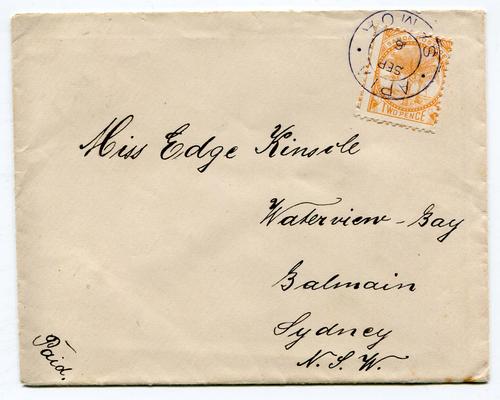 APIA
SAMOA
SEP
TWO PENCE
Miss Edge Kinsole
Waterview-Bay
Balmain
Sydney
N.S.W.
Paid.